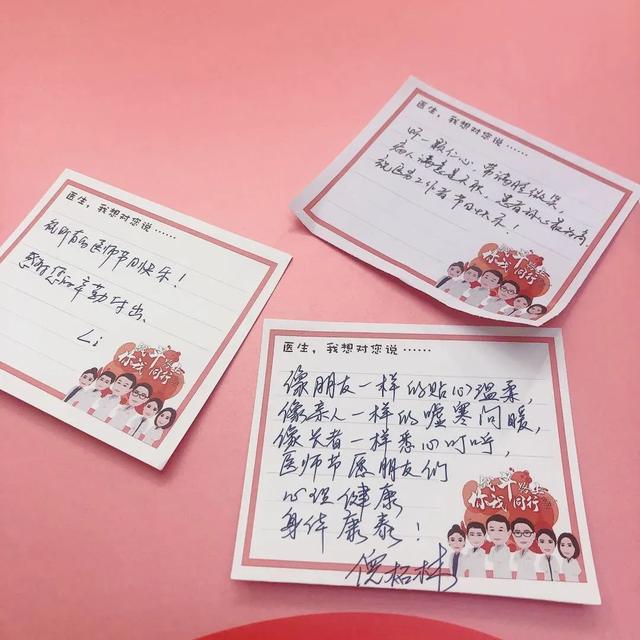 医生，我想对您说……
祝所有的医师节日快乐！
感谢您的辛勤付出、
Li
你我同行
医生，我想对您说……
怀一颗仁心，带病
病人满意是天职、患者
祝医务工作者节日快乐！
你我同行
医生，我想对您说……
像朋友一样的贴心温柔，
像亲人一样的嘘寒问暖，
像长者一样悉心叮咛，
医师节愿朋友们
心理健康
身体康泰！
你我同行